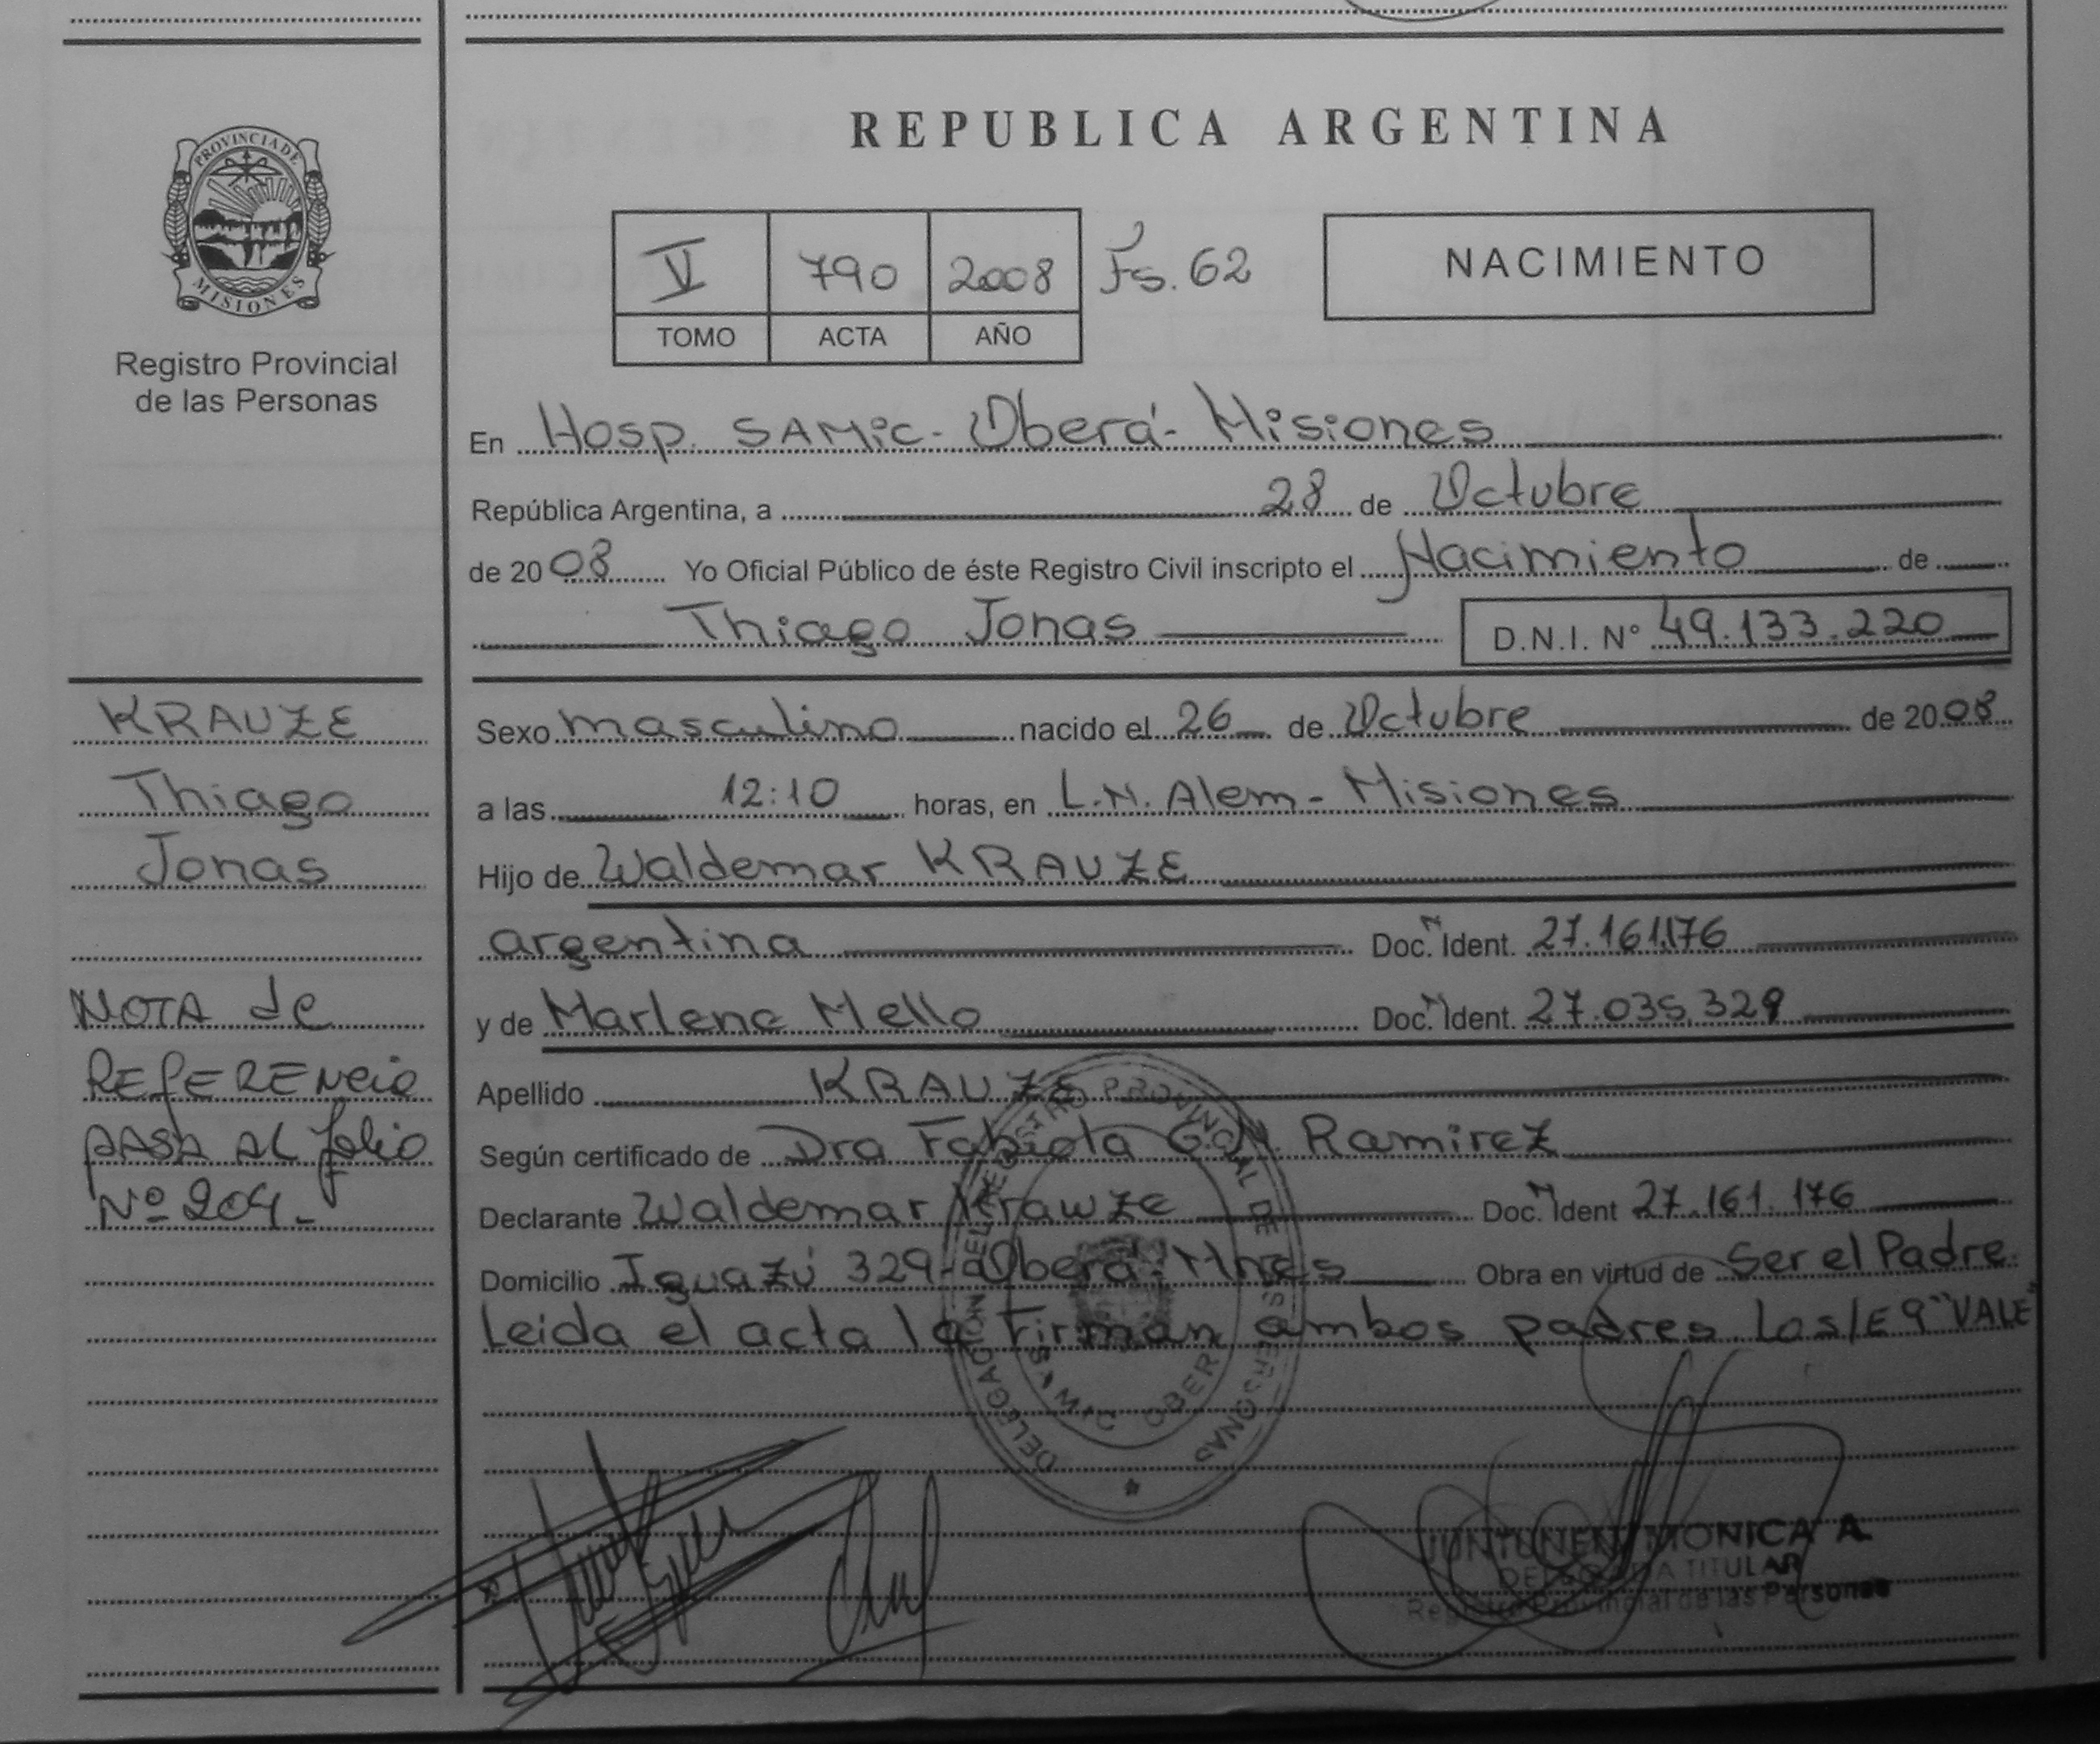 PROVINCIA DE
MISIONES
Registro Provincial
de las Personas
KRAUZE
Thiago
Jonas
NOTA de
REFERENcia
PASA AL folio
Nº 204.-
REPUBLICA ARGENTINA
V 790 2008 Fs. 62
TOMO ACTA AÑO
NACIMIENTO
En Hosp. SAMic - Oberá - Misiones
República Argentina, a 28 de Octubre
de 2008 Yo Oficial Público de éste Registro Civil inscripto el Nacimiento de
Thiago Jonas D.N.I. Nº 49.133.220
Sexo masculino nacido el 26 de Octubre de 2008
a las 12:10 horas, en L.N. Alem - Misiones
Hijo de Waldemar KRAUZE
argentina Doc. N Ident. 27.161.176
y de Marlene Mello Doc. N Ident. 27.035.329
Apellido KRAUZE
Según certificado de Dra Fabiola G.N. Ramirez
Declarante Waldemar Krauze Doc. N Ident 27.161.176
Domicilio Iguazú 329 - Oberá - Mnes Obra en virtud de Ser el Padre.
Leida el acta la Firman ambos padres Los/E 9 "VALE"
DELEGACION DEL REGISTRO PROVINCIAL DE LAS PERSONAS
SAMIC OBERA
JUNTUNEN MONICA A.
DELEGADA TITULAR
Registro Provincial de las Personas